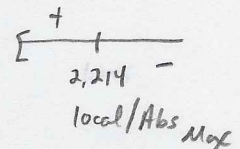 +
2,214 -
local/Abs Max